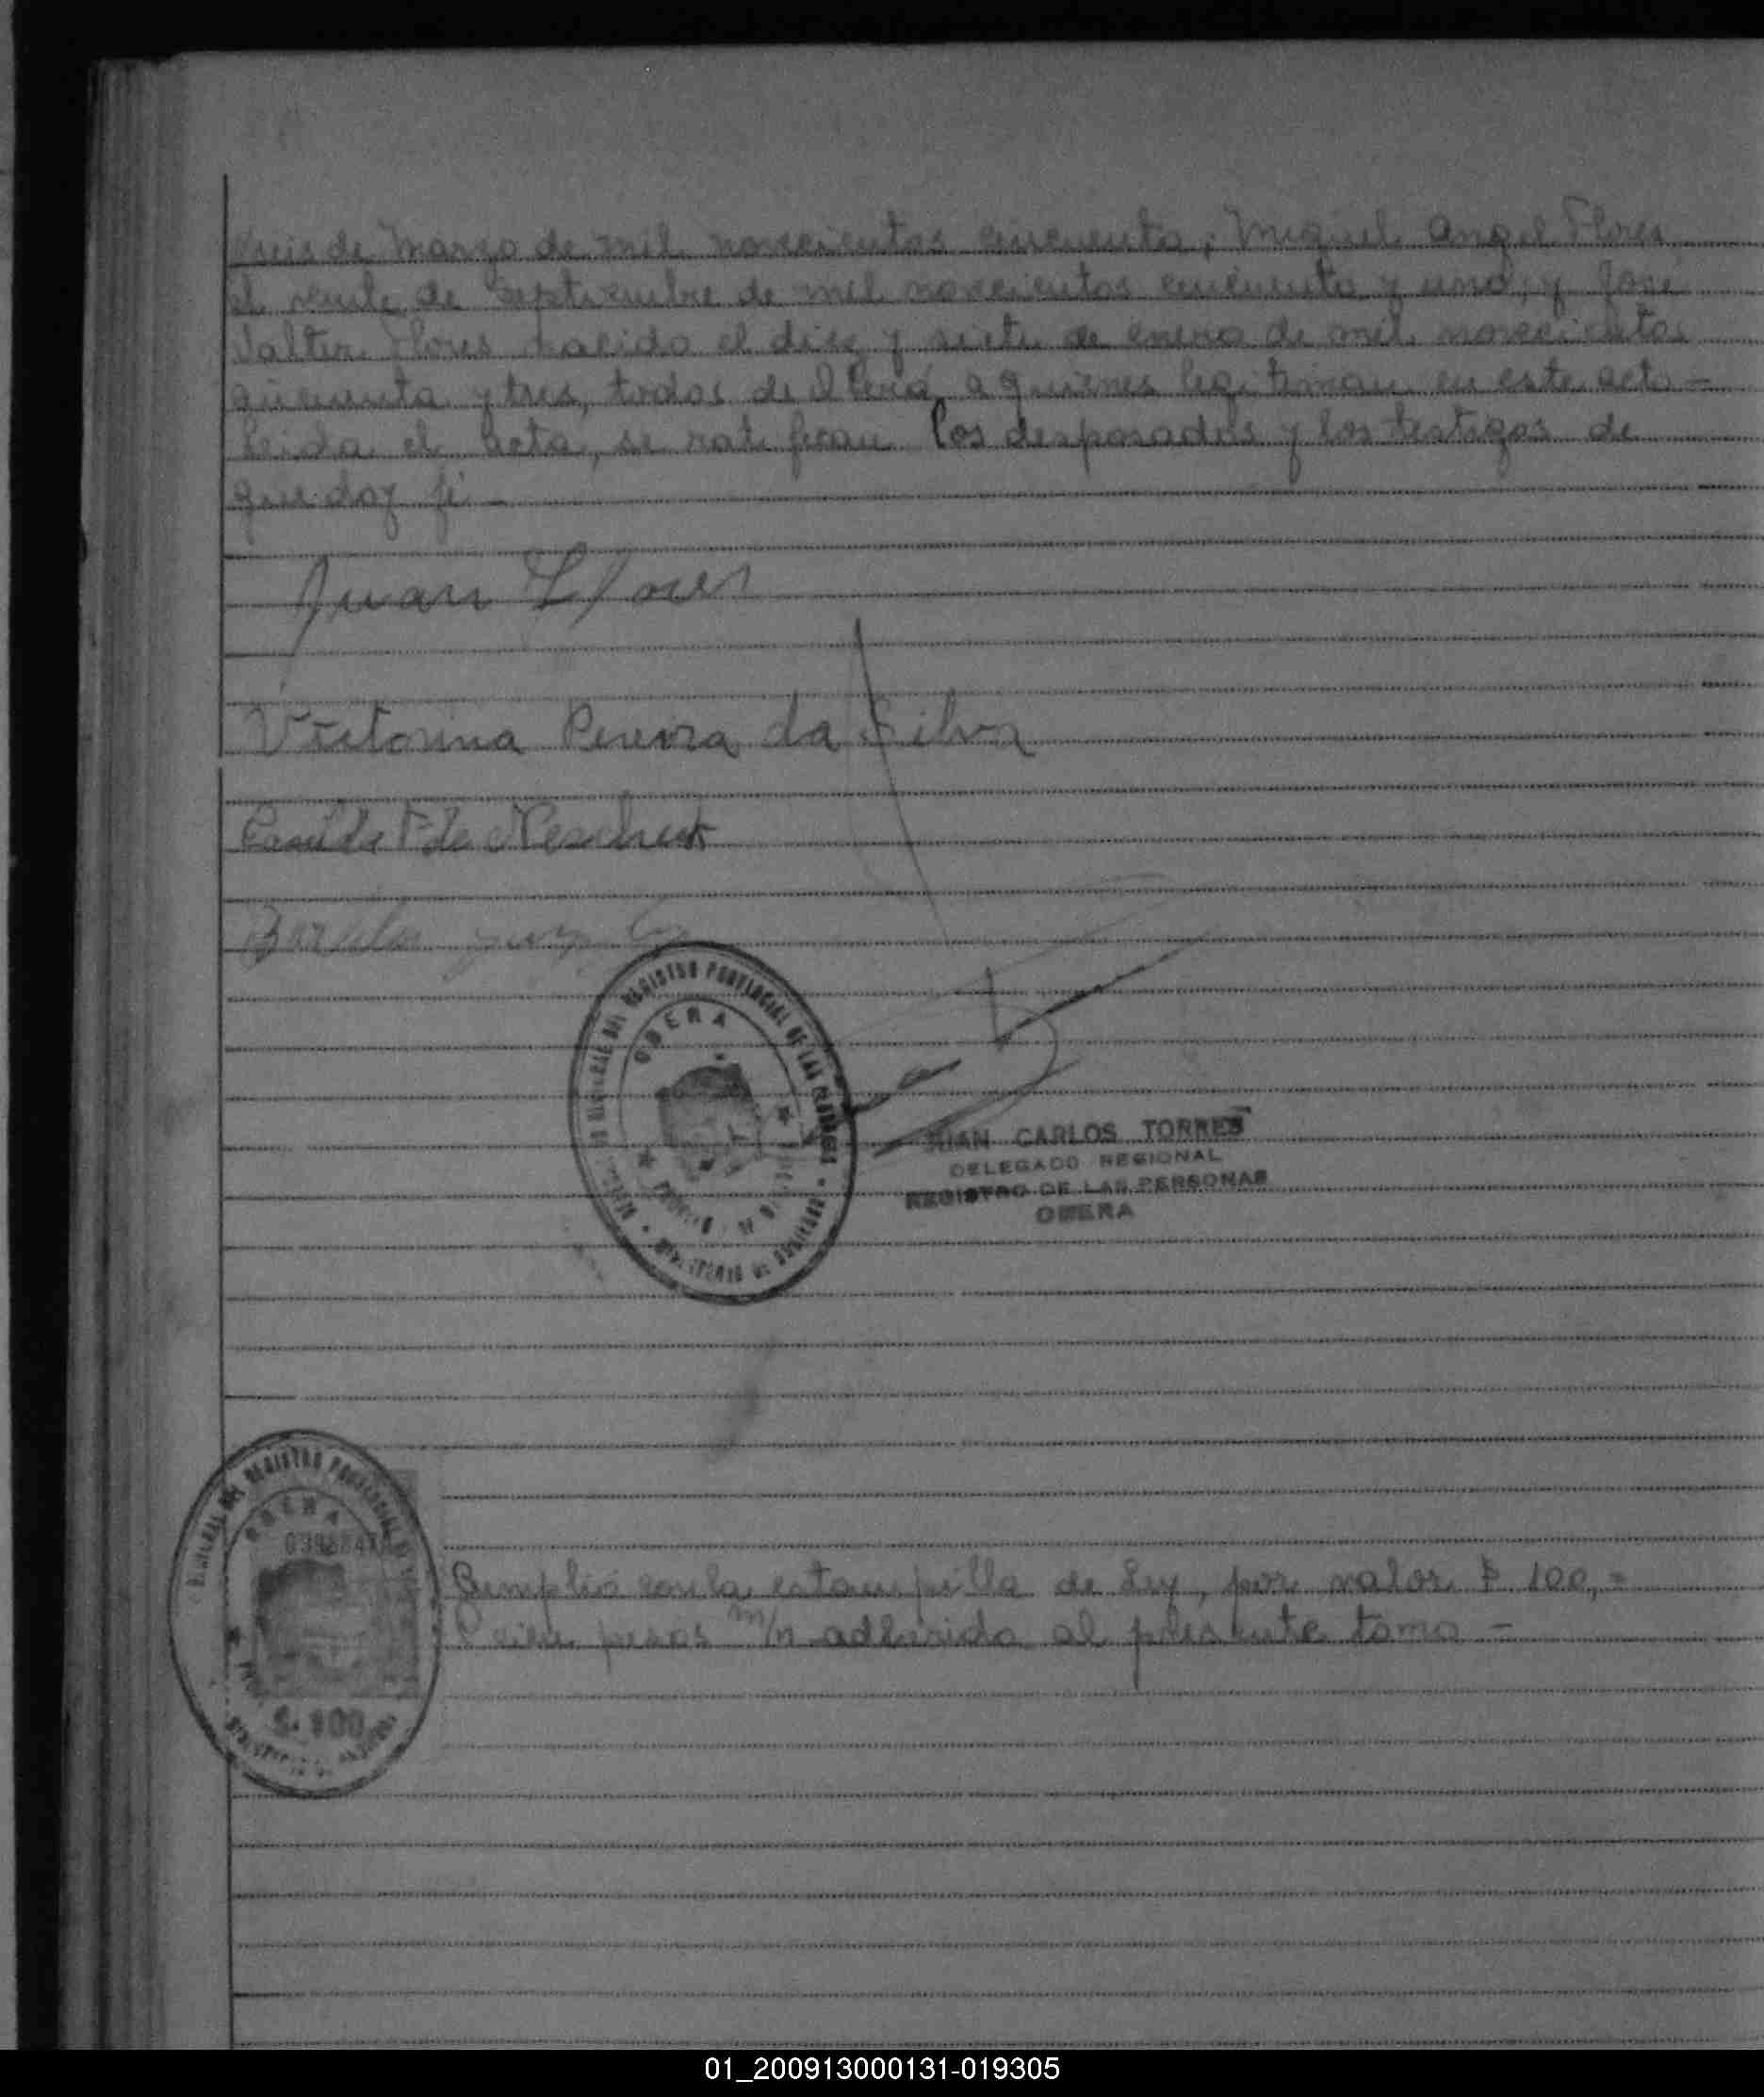 seis de Marzo de mil novecientos cincuenta; Miguel Angel Flores
el veinte de Septiembre de mil novecientos cincuenta y uno, y José
Valter Flores nacido el diez y siete de enero de mil novecientos
cincuenta y tres, todos de Oberá, a quienes legitiman en este acto =
Leida el Acta, se ratifican los desposados y los testigos de
que doy fé -
Juan Flores
Victorina Pereira da Silva
de
OBERA
REGISTRO PROVINCIAL DE LAS PERSONAS
JUAN CARLOS TORRES
DELEGADO REGIONAL
REGISTRO DE LAS PERSONAS
OBERA
REGISTRO PROVINCIAL
OBERA
$. 100
Cumplió con la estampilla de Ley, por valor $ 100,=
Cien pesos m/n adherida al presente tomo -
01_200913000131-019305